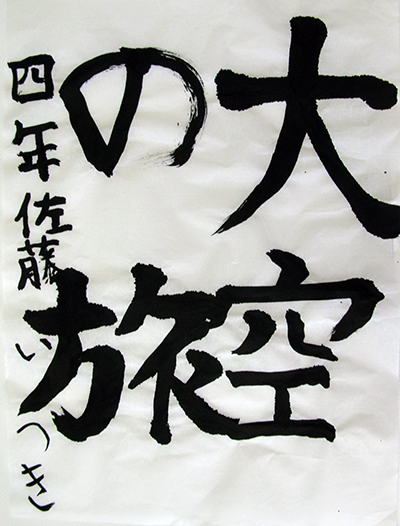 大空
の旅
四年佐藤いつき